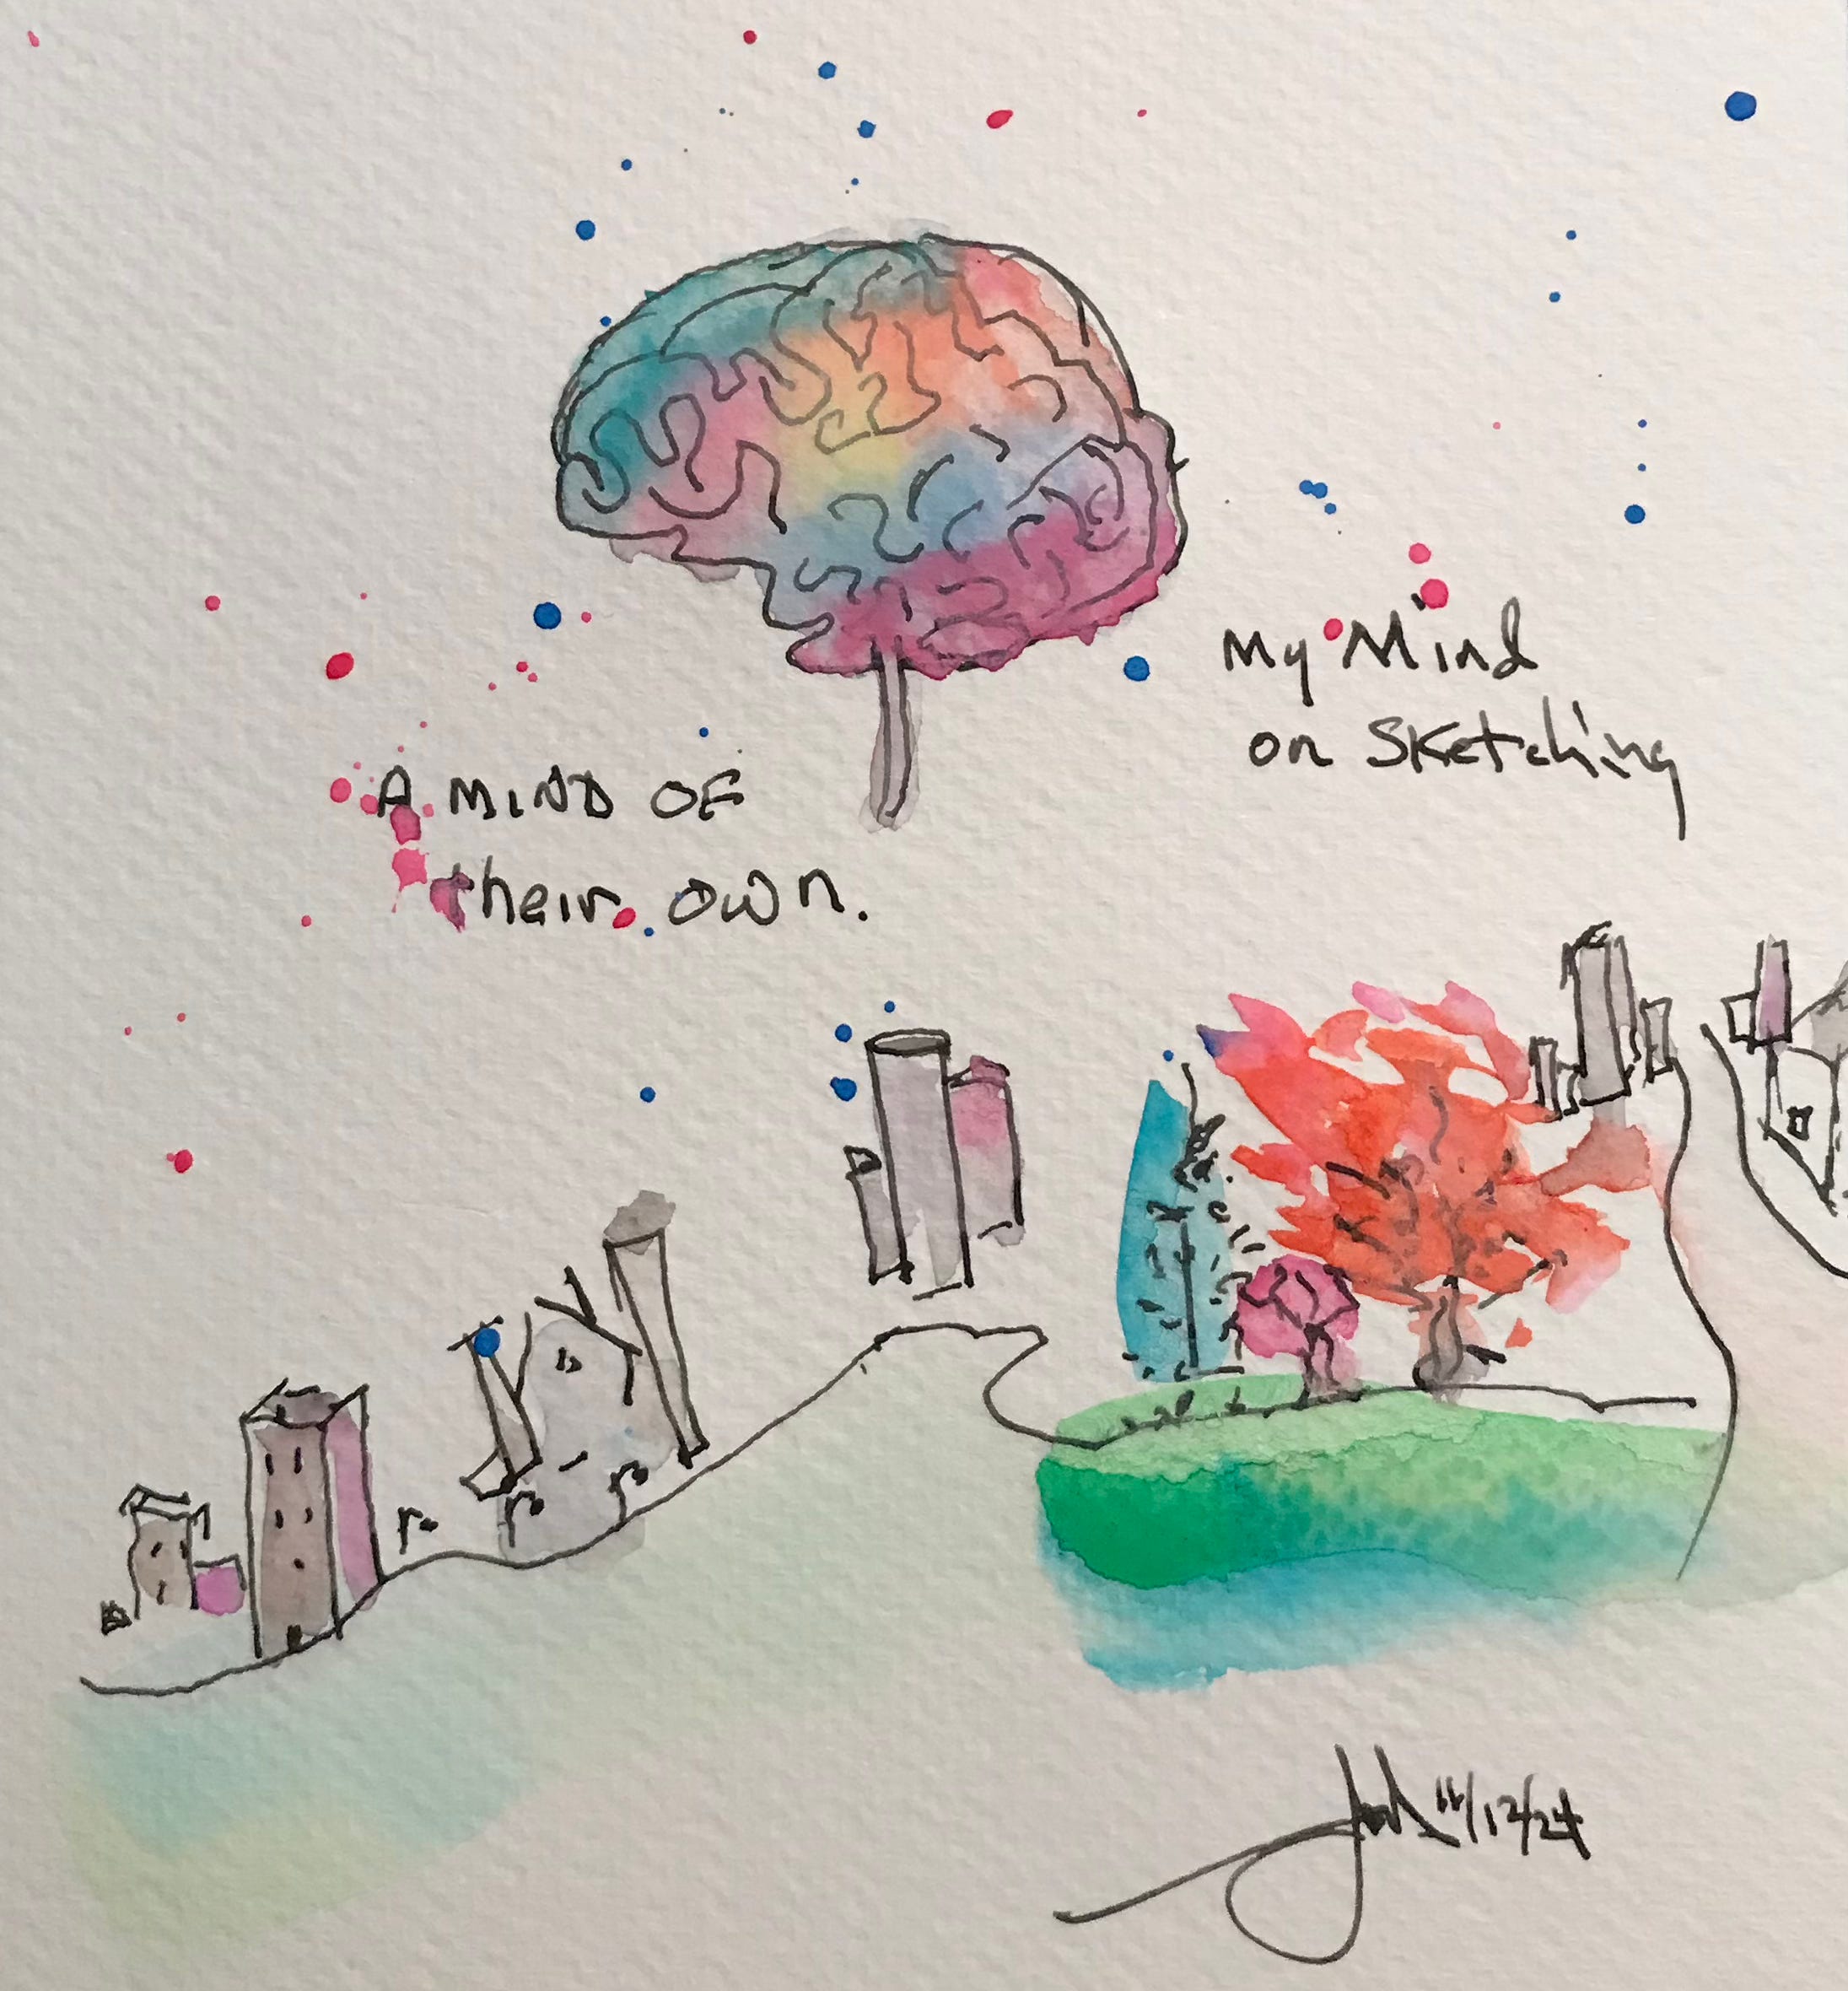 My Mind
on Sketching
A MIND OF
their own.
11/12/24